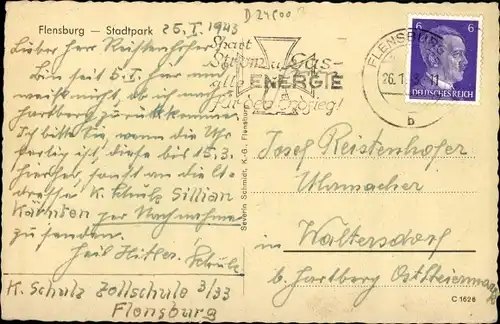 D 24500
Flensburg — Stadtpark 25. I. 1943
Lieber Herr Reistenhofer
Bin seit 5. I. hier und
nach
Hartberg zurückkommen.
Ich bitte Sie, wenn die Uhr
fertig ist, diese bis 15.3.
hierher, sonst an die Ad-
dresse K. Schulz Sillian
Kärnten per Nachnahme
zu senden.
Heil Hitler. Schulz
K. Schulz Zollschule 3/33
Flensburg
Severin Schmidt, K.-G., Flensburg
Spart
Strom u. Gas-
alle ENERGIE
für den Endsieg!
FLENSBURG
26.1.
b
6 6
DEUTSCHES REICH
Josef Reistenhofer
Uhrmacher
in Waltersdorf
b. Hartberg Oststeiermark
C 1628